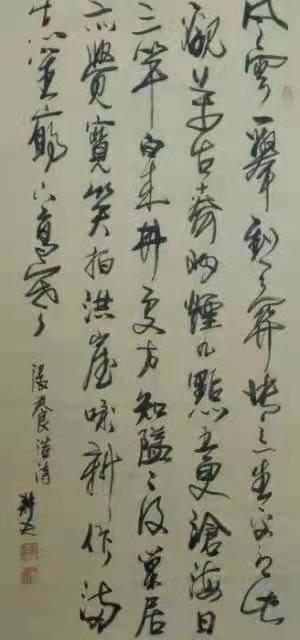 風雲一舉到天關快意生平有此
觀萬古齊州煙九點五更滄海日
三竿向来井處方知隘今後巢居
亦覺寬笑拍洪崖咏新作滿
空笙鶴下高寒
張養浩詩